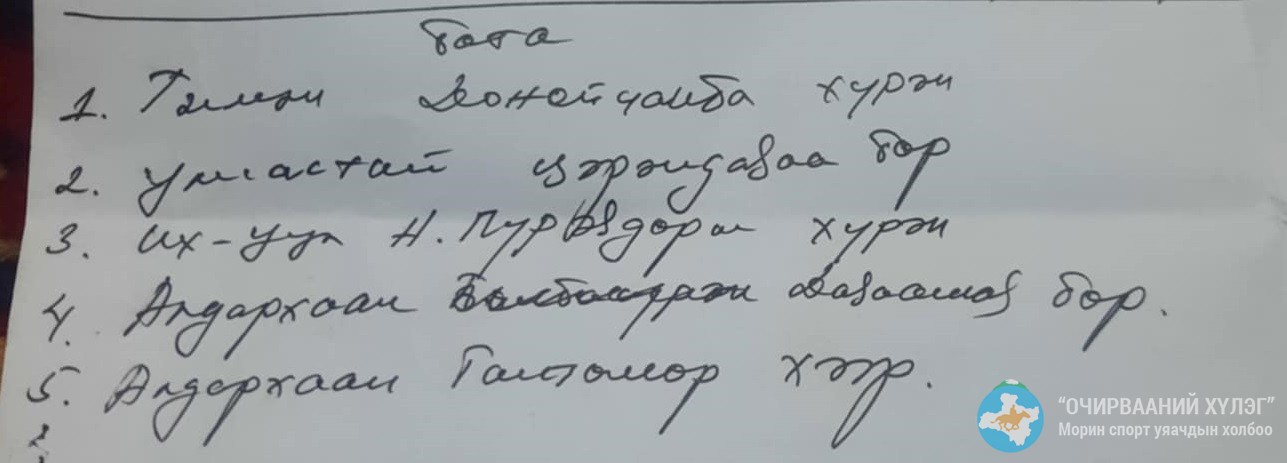 Бога
1. Тэлмэн Доной Чоймба хүрэн
2. Улиастай Цэрэндаваа бор
3. Их-Уул Н. Пүрэвдорж хүрэн
4. Алдархаан Даваажав бор.
5. Алдархаан Галтөмөр хээр.
"ОЧИРВААНИЙ ХҮЛЭГ"
Морин спорт уяачдын холбоо